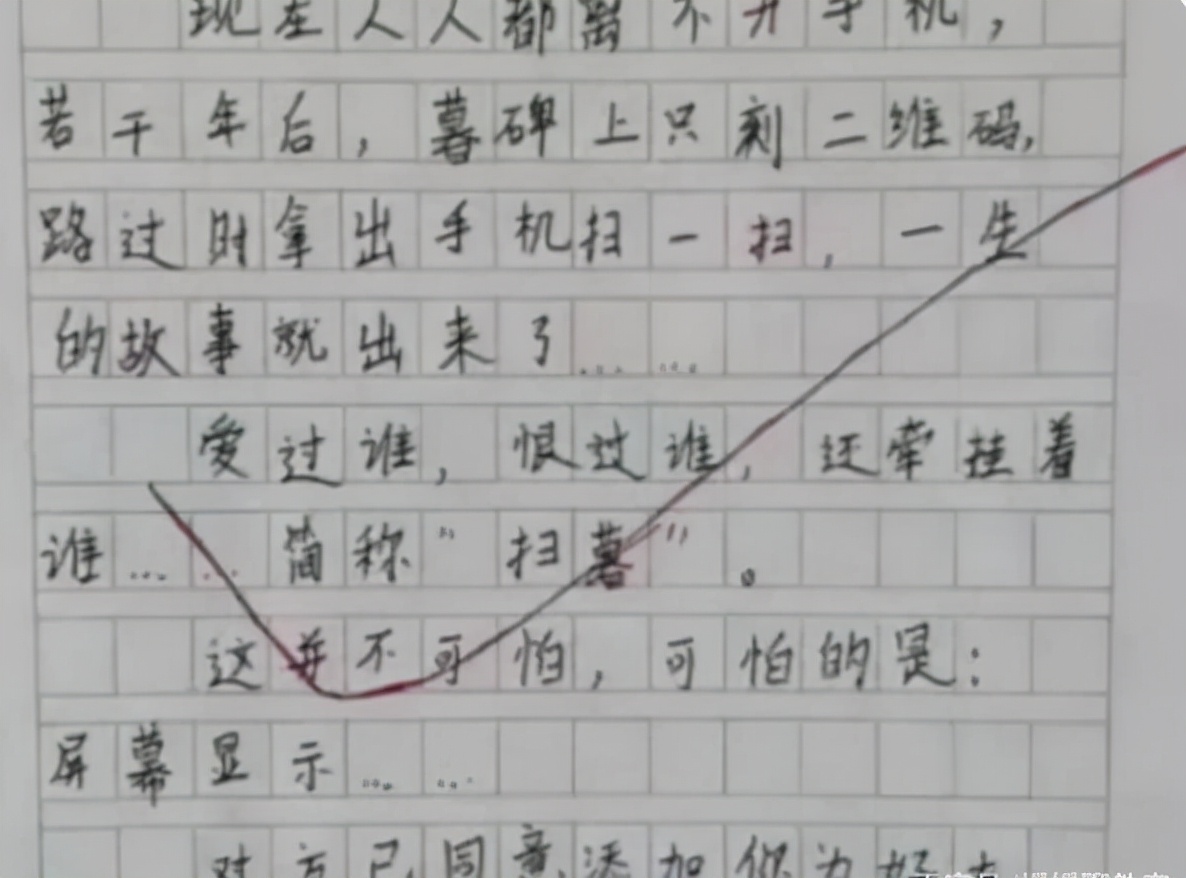 现在人人都离不开手机，
若干年后，暮碑上只刻二维码，
路过时拿出手机扫一扫，一生
的故事就出来了……
爱过谁，恨过谁，还牵挂着
谁……简称“扫暮”。
这并不可怕，可怕的是：
屏幕显示……
对方已同意添加你为好友